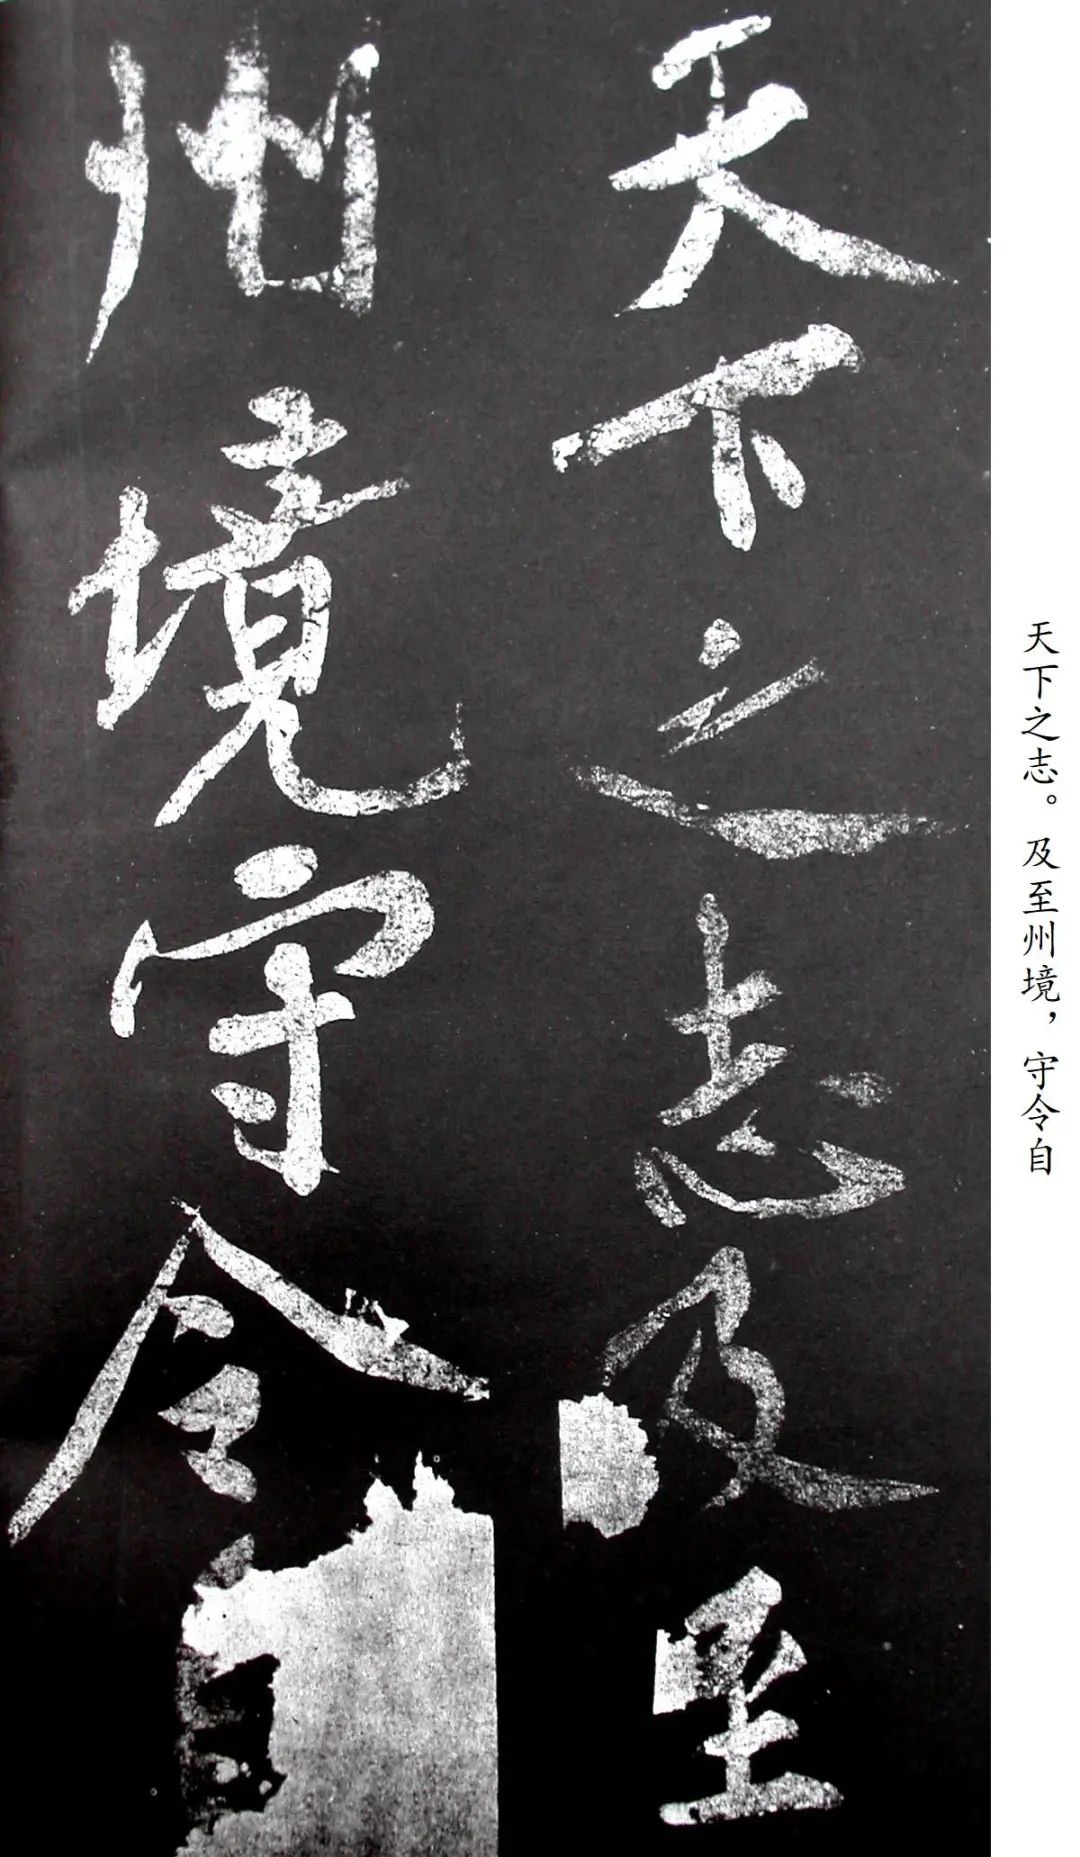 天下之志及至
州境守令自
天下之志。及至州境，守令自